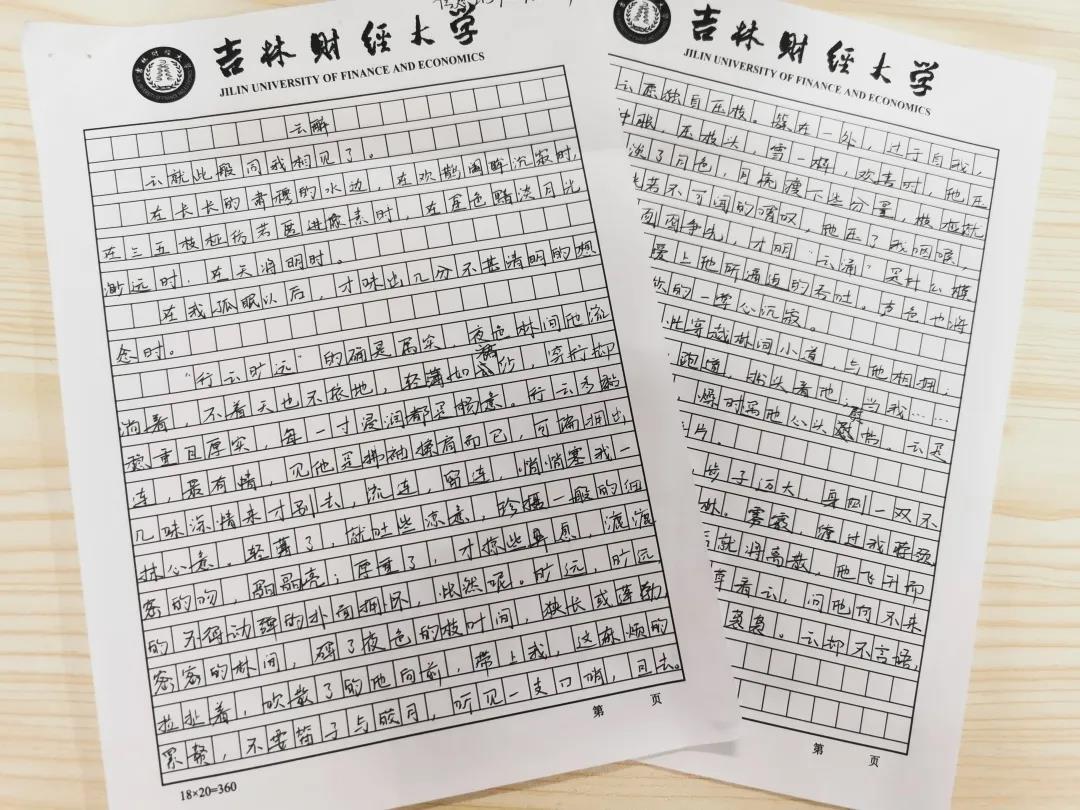 吉林财经大学
JILIN UNIVERSITY OF FINANCE AND ECONOMICS
云解
云就此般同我相见了。
在长长的肃穆的水边，在欢鹊阖眸沉寂时，
在三五枝桠仿若匿进像素时，在星色黯淡月光
渺远时，在天将明时。
在我孤眠以后，才味出几分不甚清明的想
念时。
“行云旷远”的确是属实，夜色林间他流
淌着，不着天也不依地，轻薄如，穿行却
稳重且厚实，每一寸浸润都是惬意。行云
连，最有情，见他是拂袖擦肩而已，
几味深情来才别去，流连，留连，悄悄塞我一
抹心意，轻薄了，就吐些凉意，珍摄一般的细
密的吻，晶亮；厚重了，才掠些鼻息，漉漉
的不得动弹的扑面拥怀，怅然呢。旷远，旷远
密密的林间，碎了夜色的枝叶间，狭长或蓬勃
拉扯着，吹散了的他向前，带上我，这麻烦的
累帮，不要笛子与皎月，听见一支口哨，且去。
第 页
18×20=360
吉林财经大学
JILIN UNIVERSITY OF FINANCE AND ECONOMICS
云愿独自压枝。聚在一处，过于自我，
压枝头，雪一样，欢喜时，他压
淡了月色，月晓壅下些分量，枝桠就
若不可闻的谓叹，他压了我咽喉，
面图争先，才明“云涌”是什么模
爱上他所逼迫的吞吐。声色也将
的一
心沉寂。
穿越林间小道，与他相拥；
跑道，抬头看他；当我……
时
他心头
云是
片。
步子迈大，再阻一双不
林。雾寂，
过我
就将离散，他飞升而
看云，问他何不来
袅袅。云却不言语，
第 页